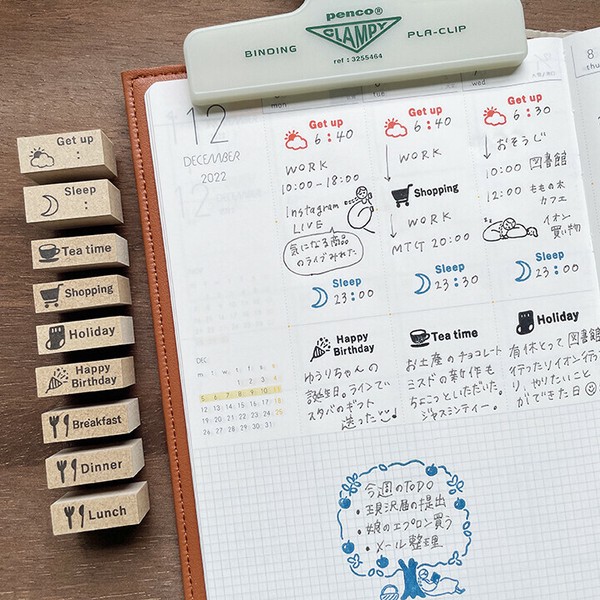 penco®
BINDING
CLAMPY
PLA-CLIP
ref : 3255464
Get up
:
Sleep
:
Tea time
Shopping
Holiday
Happy
Birthday
Breakfast
Dinner
Lunch
12
DECEMBER
2022
mon
Get up
6:40
WORK
10:00-18:00
Instagram
LIVE
気になる商品
のライブみれた
Sleep
23:00
tue
Get up
6:40
WORK
Shopping
WORK
MTG 20:00
Sleep
23:30
Get up
6:30
おそうじ
10:00 図書館
12:00 ももの木
カフェ
イオン
買い物
Sleep
23:00
8
thu
DEC
m. t. w. t. f. s. s.
1 2 3 4
5 6 7 8 9 10 11
12 13 14 15 16 17 18
19 20 21 22 23 24 25
26 27 28 29 30 31
Happy
Birthday
ゆうりちゃんの
誕生日。ラインで
スタバのギフト
送った
Tea time
お土産のチョコレート
ミスドの新作も
ちょこっといただいた。
ジャスミンティー。
Holiday
有休とって図書館
行ったりイオン行った
り、やりたいこと
ができた日
今週のTODO
・現沢届の提出
・娘のエプロン買う
・メール整理